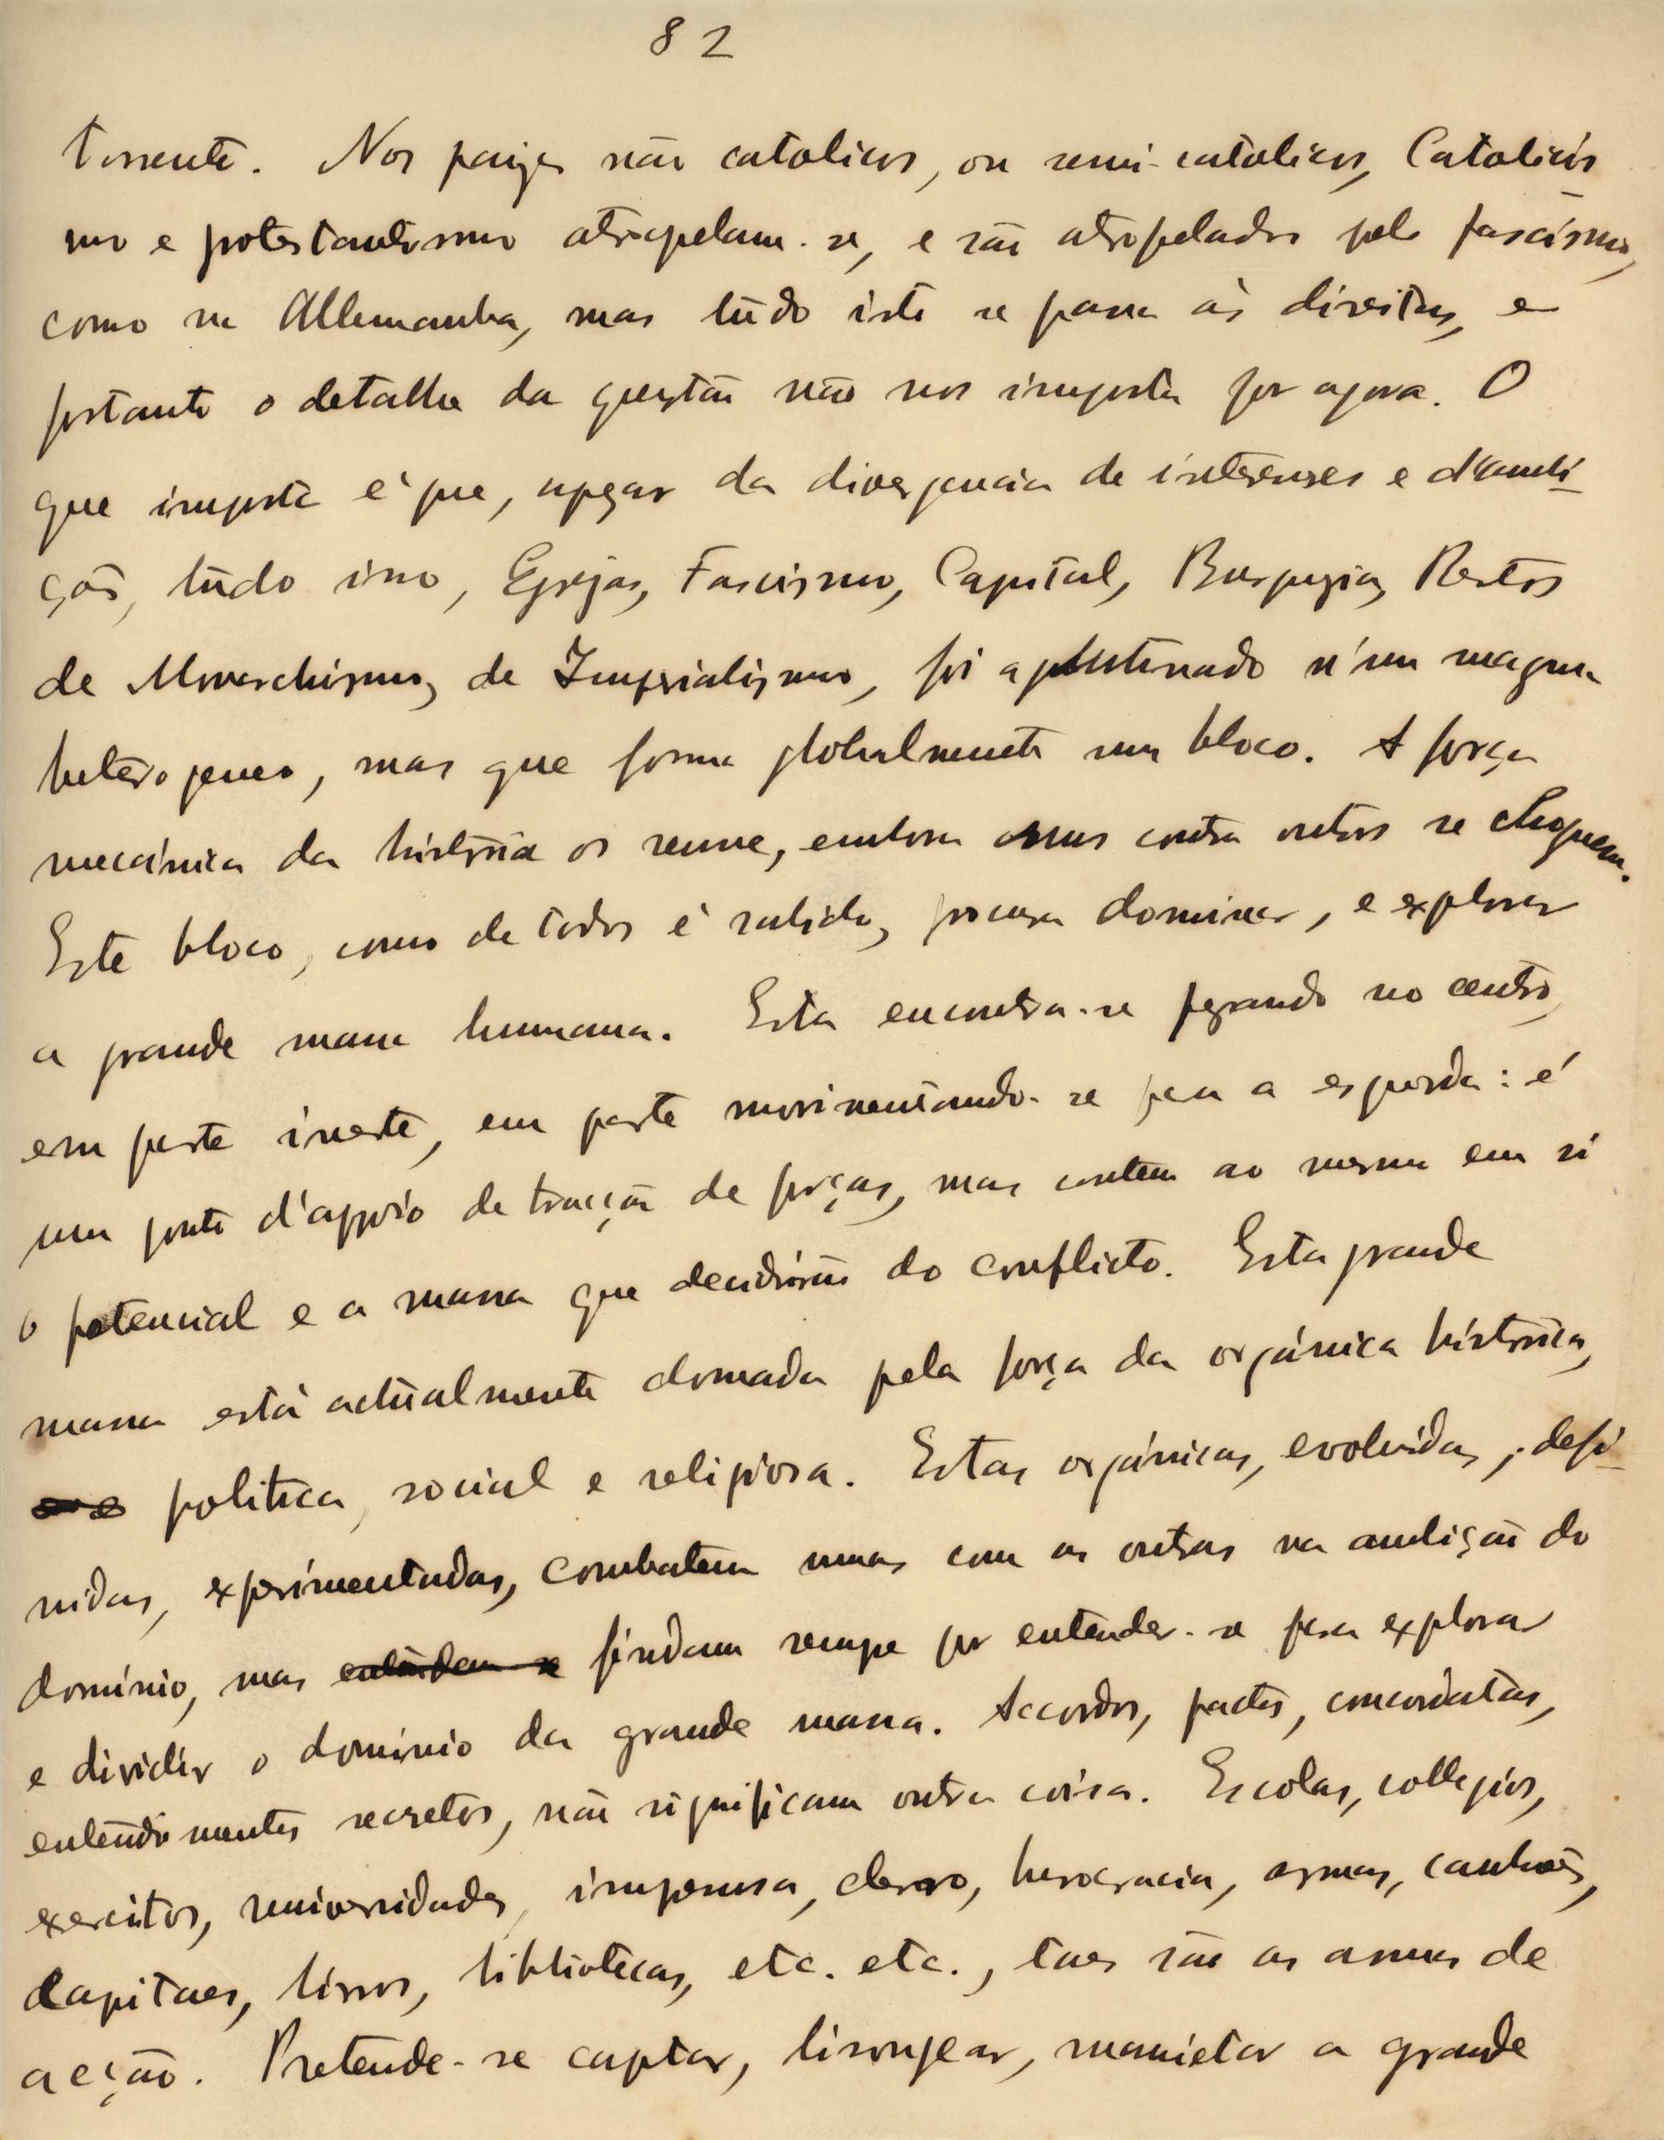 82
torrente. Nos paizes não catolicos, ou semi-catolicos, Catolicis-
mo e protestantismo atropelam-se, e são atropelados pelo fascismo,
como na Allemanha, mas tudo isto se passa ás direitas, e
portanto o detalhe da questão não nos importa por agora. O
que importa é que, apezar da divergencia de interesses e d'ambi-
ção, tudo isso, Egrejas, Fascismo, Capital, Burguezia, Restos
de Monarchismo, de Imperialismo, foi aglutinado n'um magma
heterogeneo, mas que forma globalmente um bloco. A força
mecánica da história os reune, embora uns contra outros se choquem.
Este bloco, como de todos é sabido, procura dominar, e explorar
a grande massa humana. Esta encontra-se pezando no centro,
em parte inerte, em parte movimentando-se para a esquerda: é
um ponto d'appoio de tracção de forças, mas contem ao mesmo em si
o potencial e a massa que decidirão do conflicto. Esta grande
massa está actualmente domada pela força da orgánica histórica,
politica, social e religiosa. Estas orgánicas, evoluidas, defi-
nidas, experimentadas, combatem umas com as outras na ambição do
domínio, mas entendem se findam sempre por entender-se para explorar
e dividir o domínio da grande massa. Accordos, pactos, concordatas,
entendimentos secretos, não significam outra coisa. Escolas, collegios,
exercitos, universidades, imprensa, clero, burocracia, armas, canhões,
capitaes, livros, bibliotecas, etc. etc., taes são as armas de
acção. Pretende-se captar, lisongear, manietar a grande